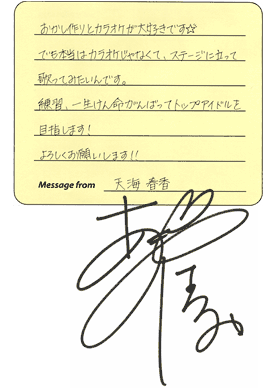 おかし作りとカラオケが大好きです☆
でも本当はカラオケじゃなくて、ステージに立って
歌ってみたいんです。
練習、一生けん命がんばってトップアイドルを
目指します！
よろしくお願いします！！
Message from 天海 春香